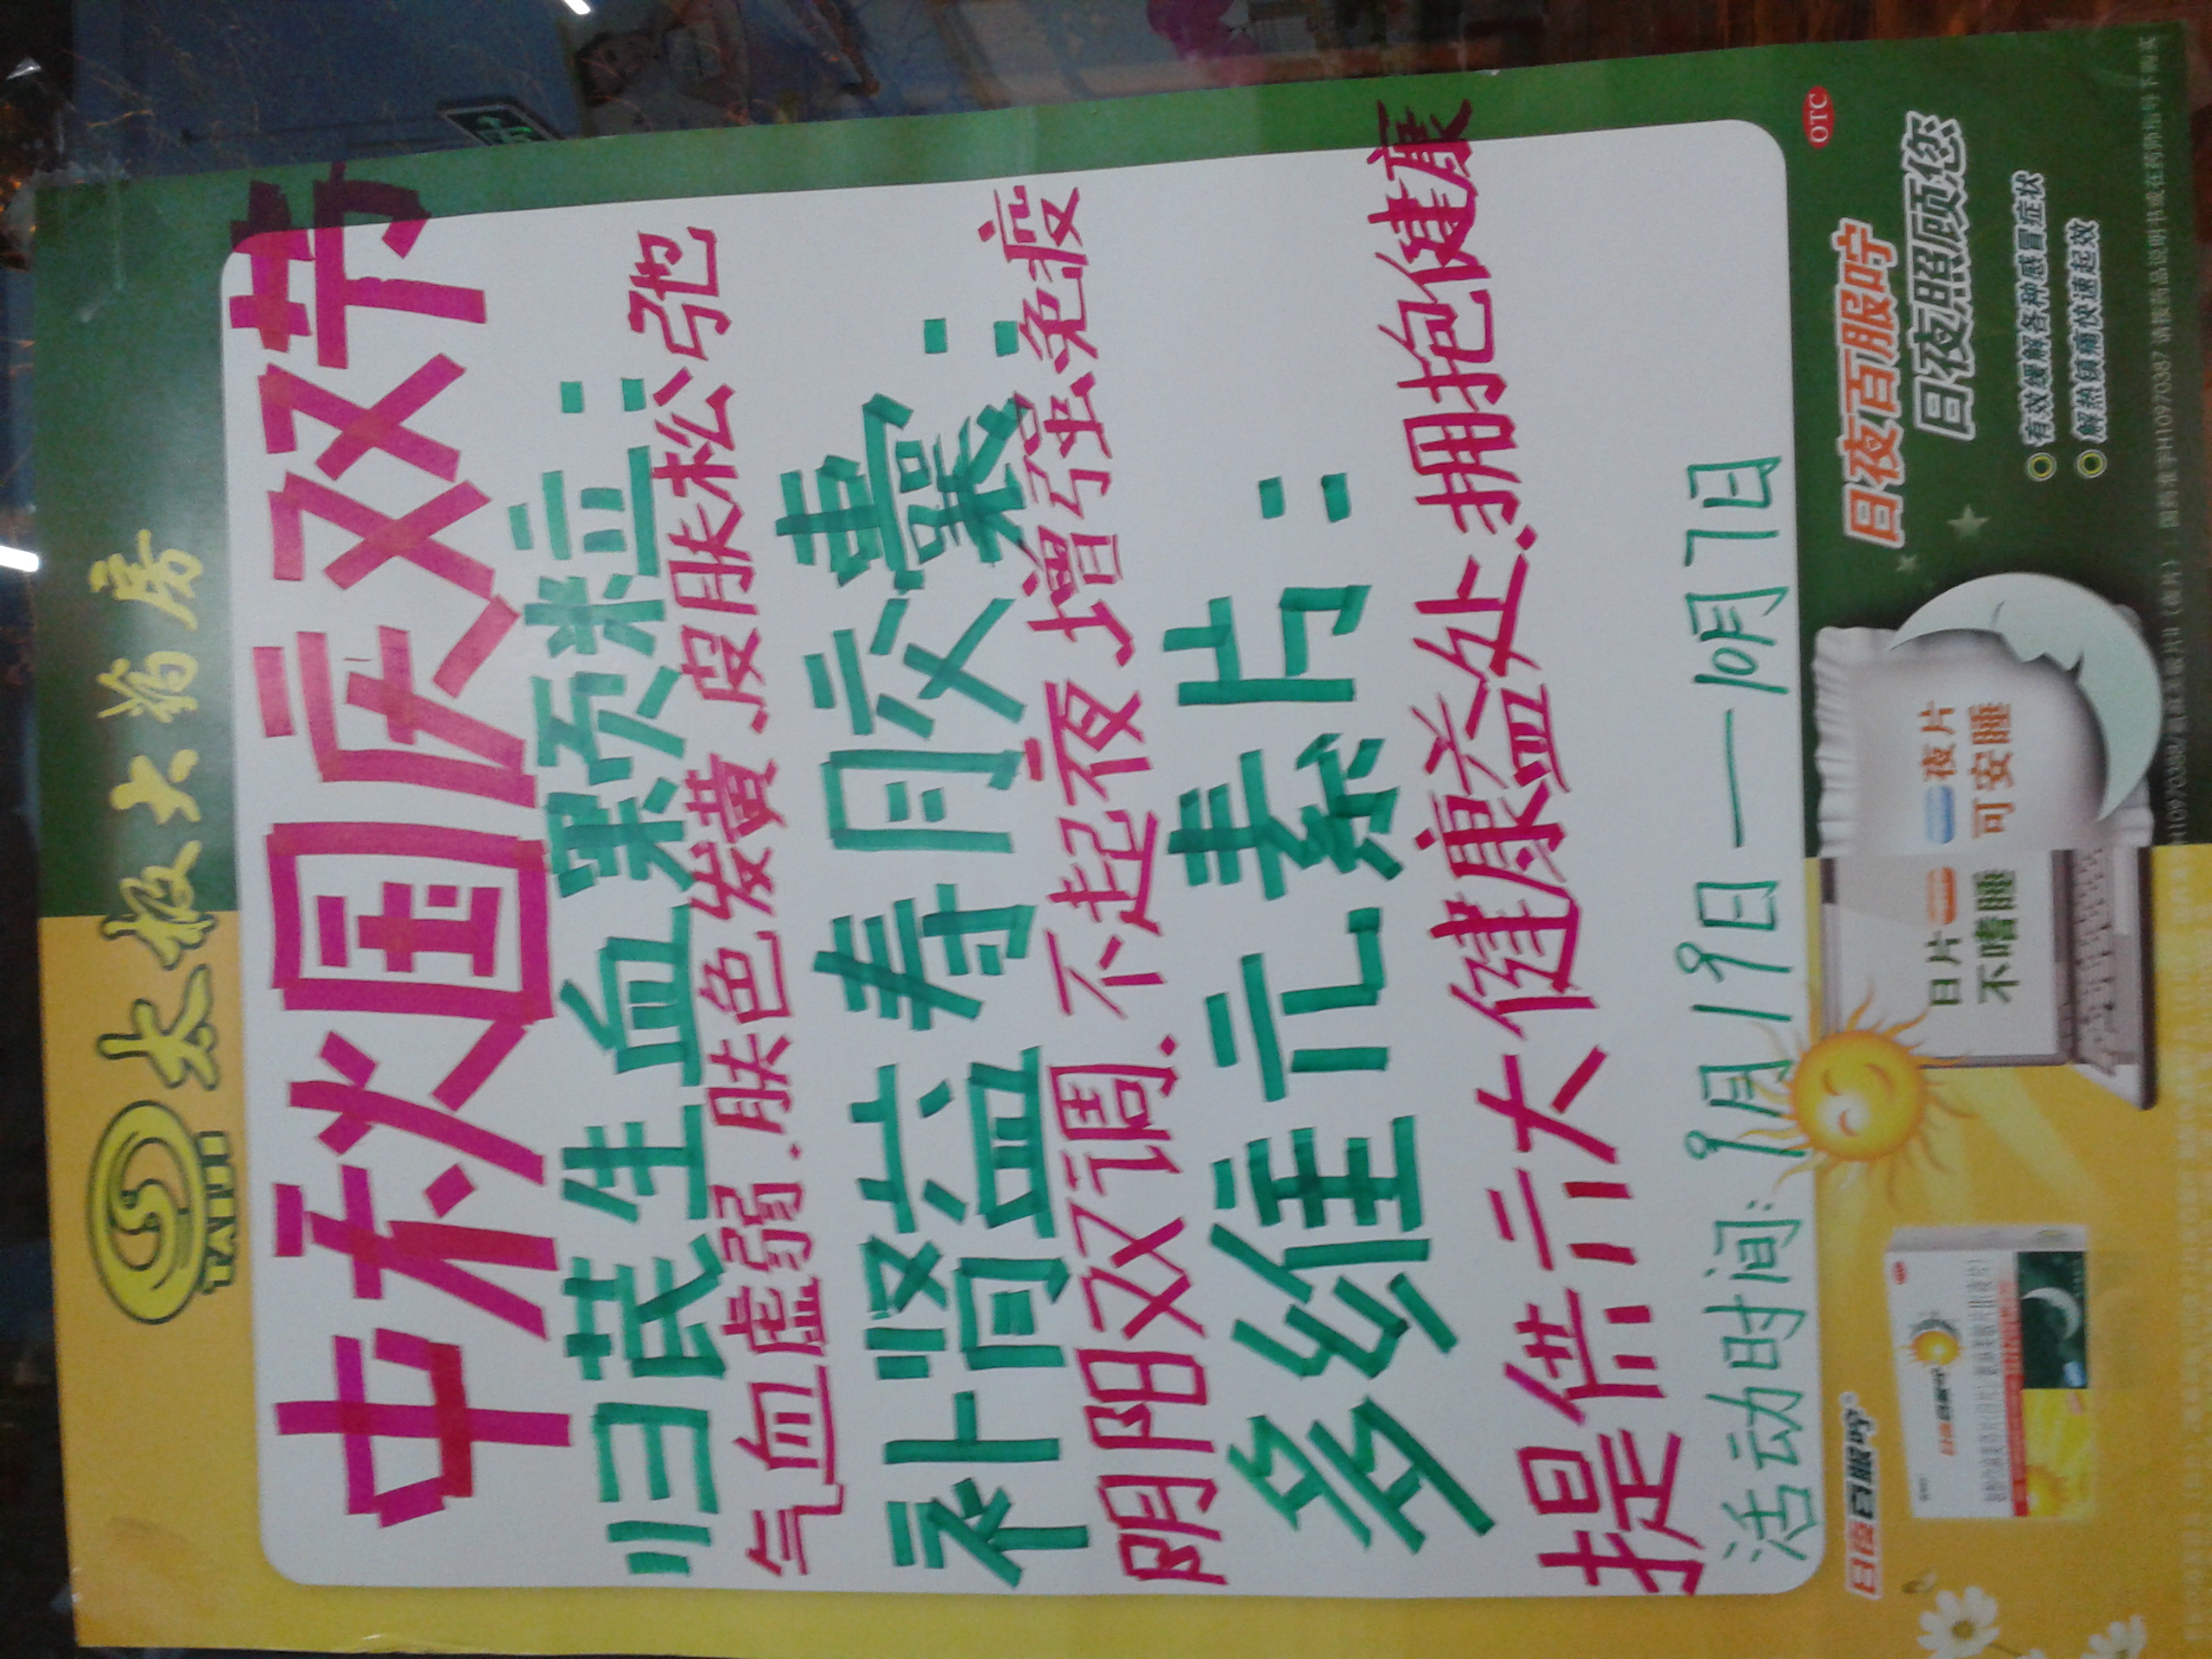 太极大药房
TAIJI
中秋国庆双节
归芪生血颗粒:
气血虚弱.肤色发黄.皮肤松弛
补肾益寿胶囊:
阴阳双调.不起夜 增强免疫
多维元素片:
提供六大健康益处.拥抱健康
活动时间:9月19日—10月7日
OTC
日夜百服咛
日夜照顾您
有效缓解各种感冒症状
解热镇痛快速起效
日片 夜片
不嗜睡 可安睡
日夜百服咛
请按药品说明书或在药师指导下购买